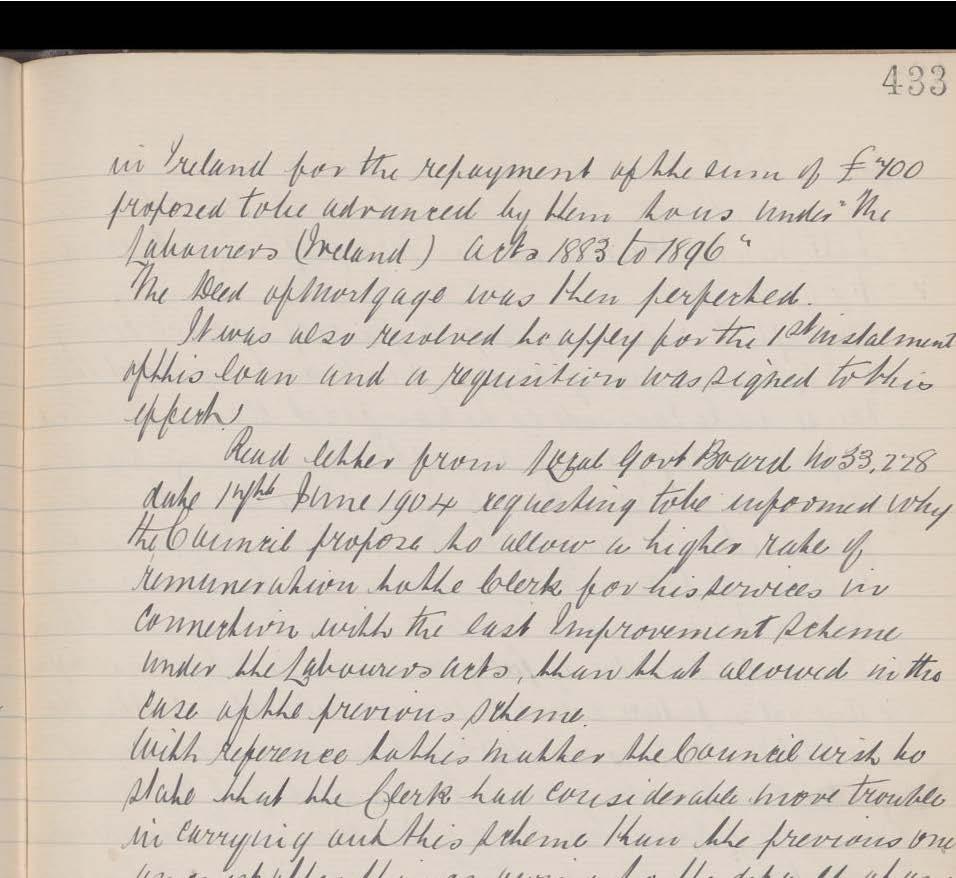 433
in Ireland for the repayment of the sum of £700
proposed to be advanced by them to us under "The
Labourers (Ireland) Acts 1883 to 1896"
The Deed of Mortgage was then perfected.
It was also resolved to apply for the 1st instalment
of this loan and a requisition was signed to this
effect.
Read letter from Local Govt Board No 33,228
date 17th June 1904 requesting to be informed why
the Council propose to allow a higher rate of
remuneration to the Clerk for his services in
connection with the last Improvement Scheme
under the Labourers Acts, than that allowed in the
case of the previous scheme.
With reference to this matter the Council wish to
state that the Clerk had considerable more trouble
in carrying out this scheme than the previous one